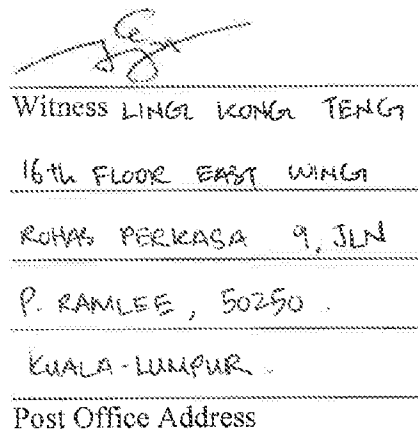 Witness LING KONG TENG
16th FLOOR EAST WING
ROHAS PERKASA 9, JLN
P. RAMLEE, 50250.
KUALA-LUMPUR.
Post Office Address